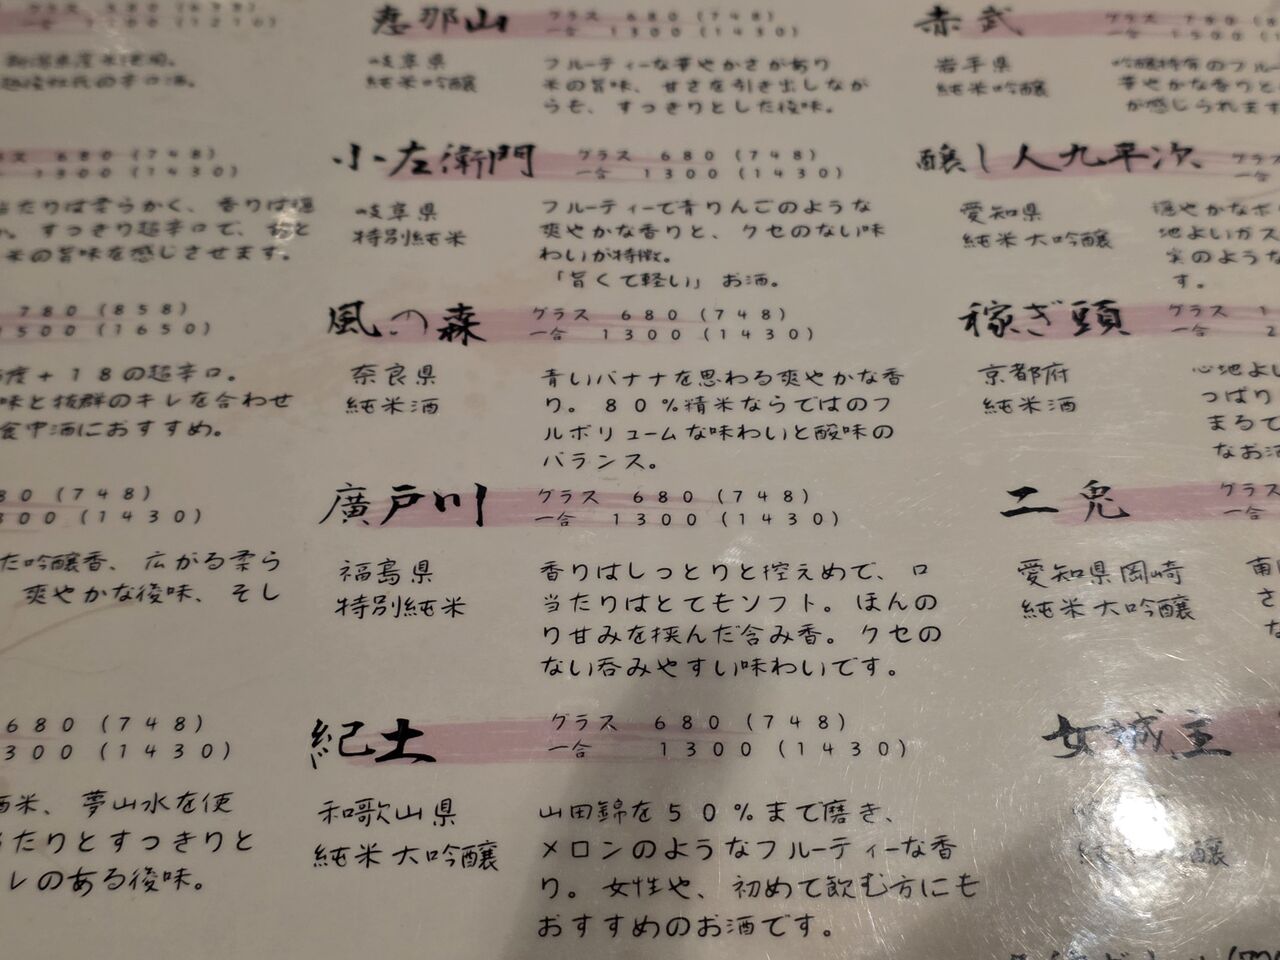 恵那山
グラス 680(748)
一合 1300(1430)
岐阜県
純米吟醸
フルーティーな華やかさがあり
米の旨味、甘さを引き出しなが
らも、すっきりとした後味。
小左衛門
グラス 680(748)
一合 1300(1430)
岐阜県
特別純米
フルーティーで青りんごのような
爽やかな香りと、クセのない味
わいが特徴。
「旨くて軽い」お酒。
風の森
グラス 680(748)
一合 1300(1430)
奈良県
純米酒
青いバナナを思わる爽やかな香
り。80%精米ならではのフ
ルボリュームな味わいと酸味の
バランス。
廣戸川
グラス 680(748)
一合 1300(1430)
福島県
特別純米
香りはしっとりと控えめで、口
当たりはとてもソフト。ほんの
り甘みを挟んだ含み香。クセの
ない呑みやすい味わいです。
紀土
グラス 680(748)
一合 1300(1430)
和歌山県
純米大吟醸
山田錦を50%まで磨き、
メロンのようなフルーティーな香
り。女性や、初めて飲む方にも
おすすめのお酒です。
680(748)
1300(1430)
当たりは柔らかく、香りは穏
すっきり超辛口で、
米の旨味を感じさせます。
780(858)
1500(1650)
度+18の超辛口。
味と抜群のキレを合わせ
食中酒におすすめ。
80(748)
300(1430)
た吟醸香、広がる柔ら
爽やかな後味、そし
680(748)
300(1430)
酒米、夢山水を使
当たりとすっきりと
レのある後味。
赤武
岩手県
純米吟醸
吟醸特有のフルー
華やかな香りと
が感じられます
醸し人九平次
グラ
愛知県
純米大吟醸
穏やかなボ
地よいガス
実のような
す。
稼ぎ頭
グラス 1
一合 2
京都府
純米酒
心地よし
つぱり
まるで
なお酒
二兎
グラス
一合
愛知県岡崎
純米大吟醸
さ
女城主